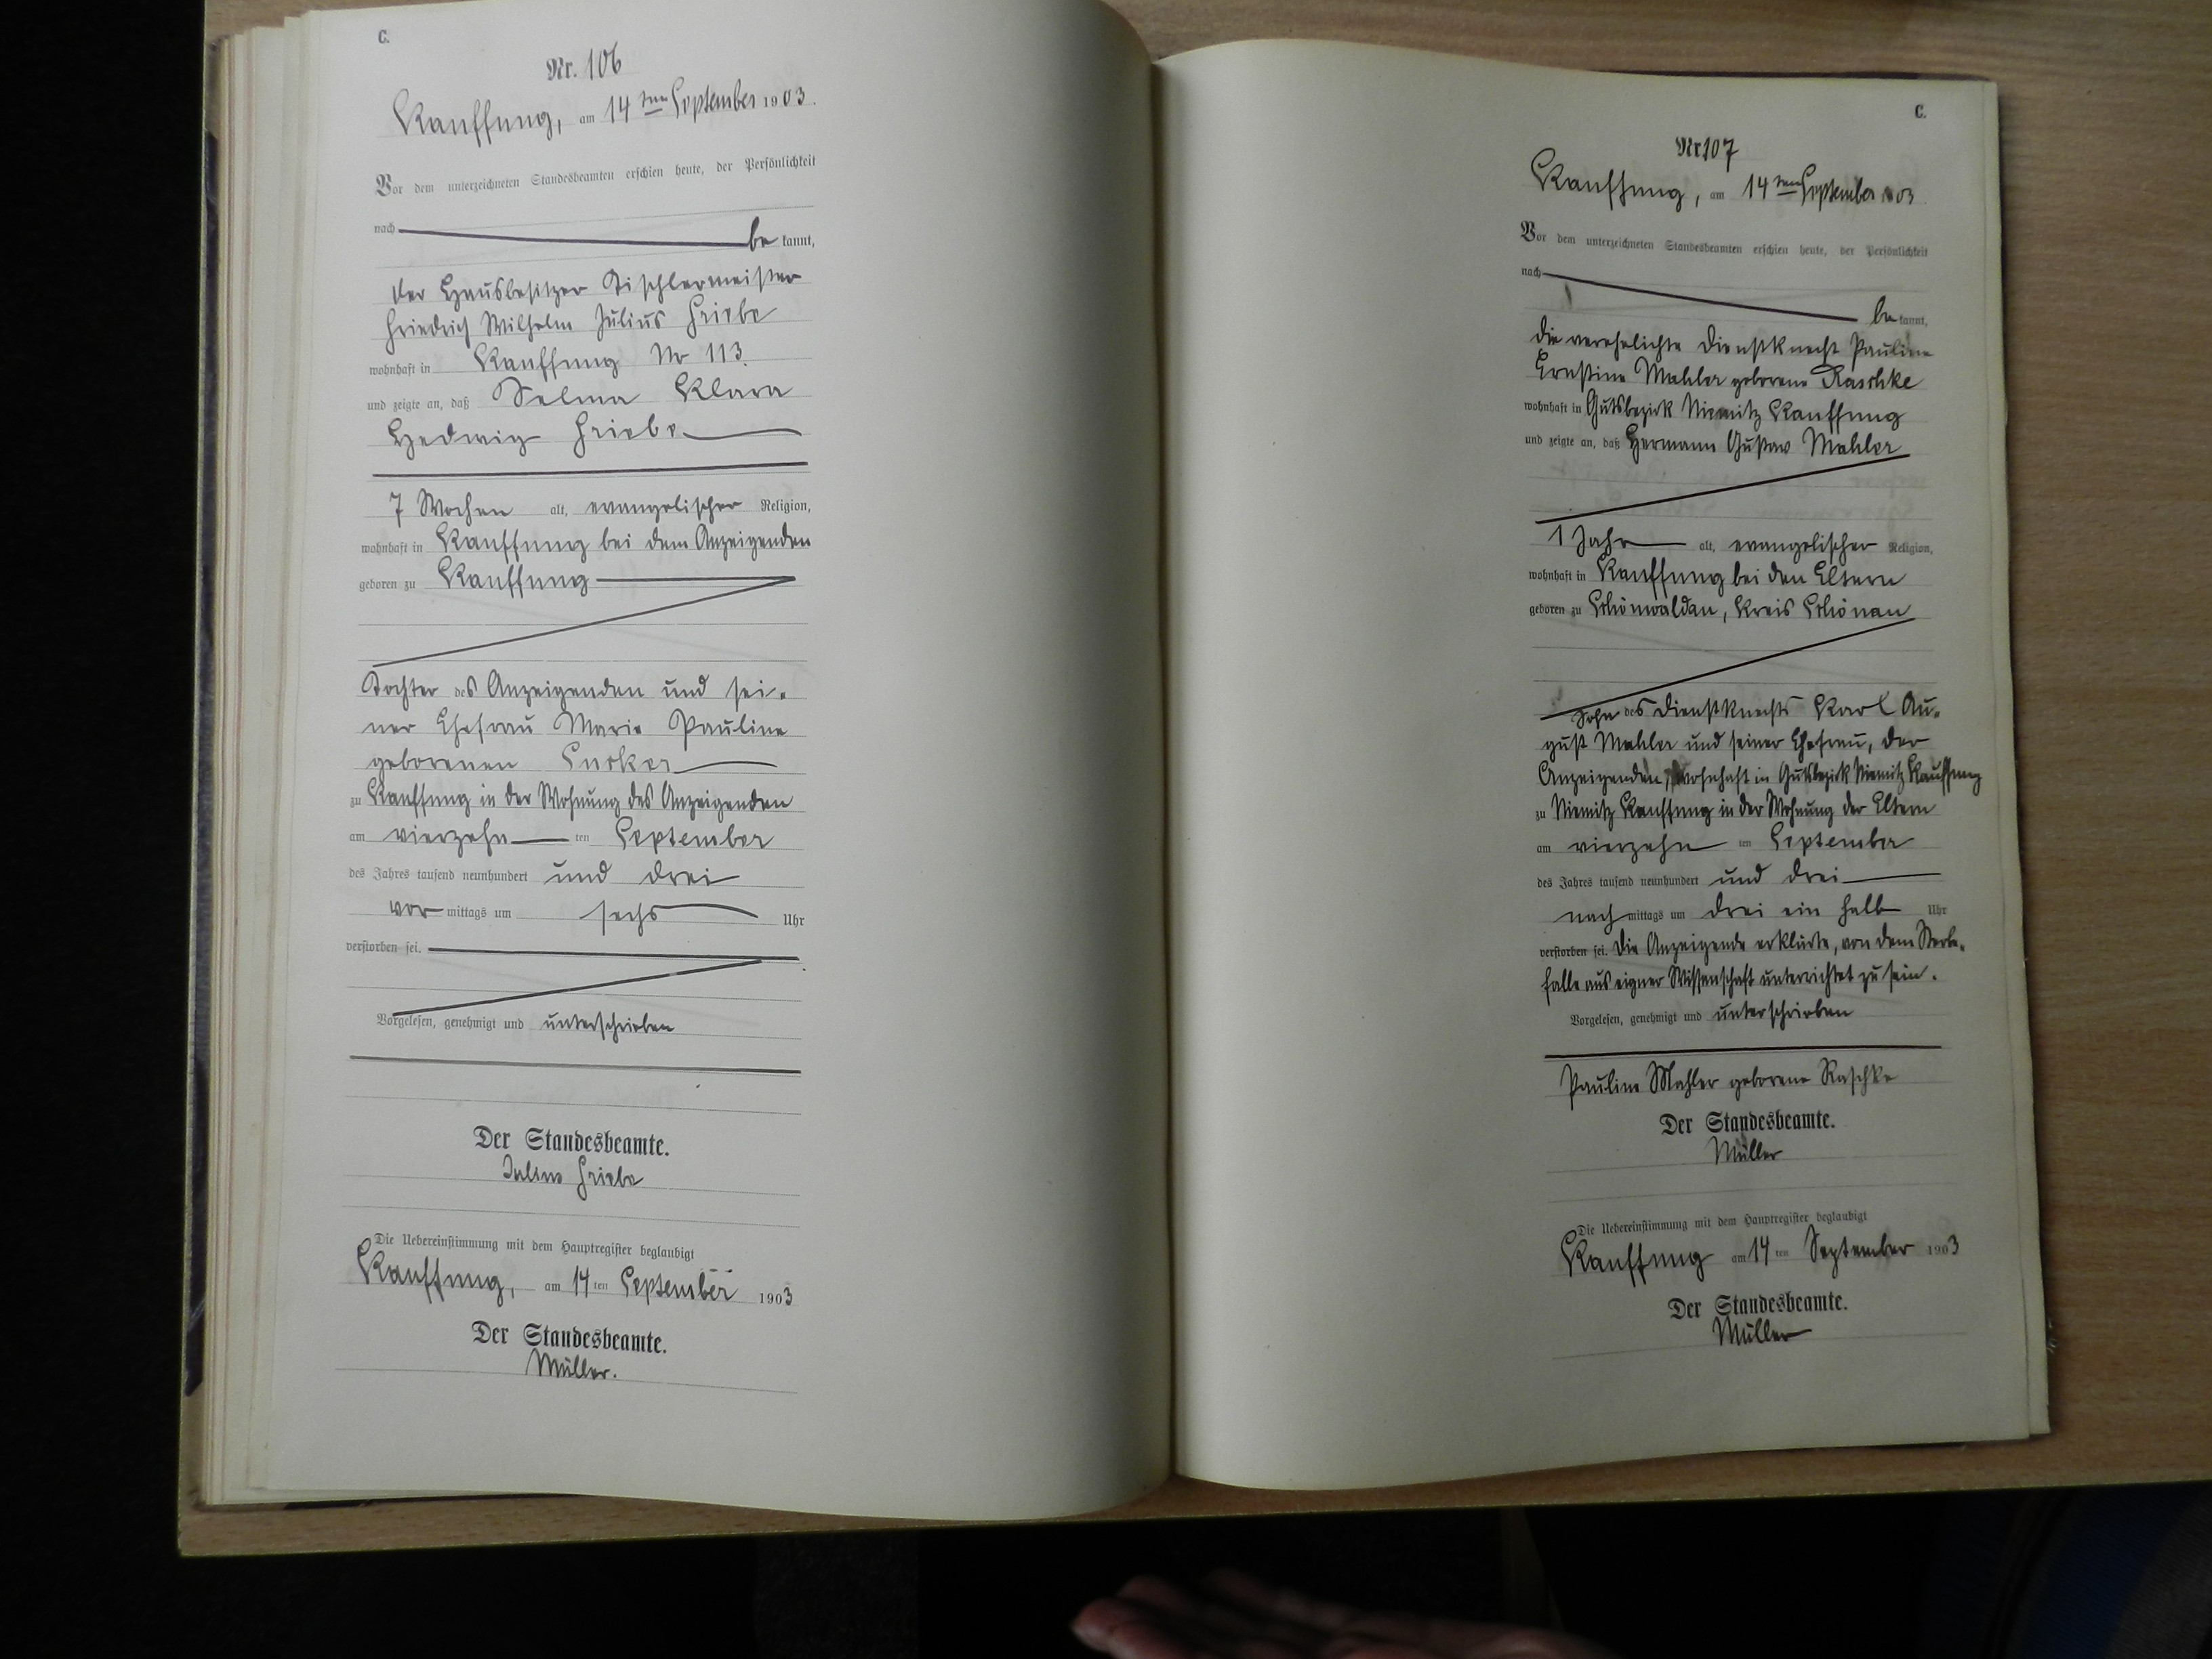 C.
Nr. 106
Kauffung, am 14ten September 1903.
Vor dem unterzeichneten Standesbeamten erschien heute, der Persönlichkeit
nach be kannt,
der Hausbesitzer Tischlermeister
Friedrich Wilhelm Julius Friebe
wohnhaft in Kauffung No 113.
und zeigte an, daß Selma Klara
Hedwig Friebe
7 Wochen alt, evangelischer Religion,
wohnhaft in Kauffung bei dem Anzeigenden
geboren zu Kauffung
Tochter des Anzeigenden und sei-
ner Ehefrau Marie Pauline
geborenen
zu Kauffung in der Wohnung des Anzeigenden
am vierzehn ten September
des Jahres tausend neunhundert und drei
vor mittags um sechs Uhr
verstorben sei.
Vorgelesen, genehmigt und unterschrieben
Der Standesbeamte.
Julius Friebe
Die Uebereinstimmung mit dem Hauptregister beglaubigt
Kauffung, am 14 ten September 1903
Der Standesbeamte.
Müller.
C.
Nr 107
Kauffung, am 14ten September 1903
Vor dem unterzeichneten Standesbeamten erschien heute, der Persönlichkeit
nach be kannt,
die verehelichte Dienstknecht Pauline
Ernstine Mahler geborene Raschke
wohnhaft in Gutsbezirk Niemitz Kauffung
und zeigte an, daß Hermann Gustav Mahler
1 Jahr alt, evangelischer Religion,
wohnhaft in Kauffung bei den Eltern
geboren zu Schönwaldau, Kreis Schönau
Sohn des Dienstknechts Karl Au-
gust Mahler und seiner Ehefrau, der
Anzeigenden, wohnhaft in Gutsbezirk Niemitz Kauffung
zu Niemitz Kauffung in der Wohnung der Eltern
am vierzehn ten September
des Jahres tausend neunhundert und drei
nach mittags um drei ein halb Uhr
verstorben sei. Die Anzeigende erklärte, von dem Sterbe-
falle aus eigner Wissenschaft unterrichtet zu sein.
Vorgelesen, genehmigt und unterschrieben
Pauline Mahler geborene Raschke
Der Standesbeamte.
Müller
Die Uebereinstimmung mit dem Hauptregister beglaubigt
Kauffung am 14 ten September 1903
Der Standesbeamte.
Müller